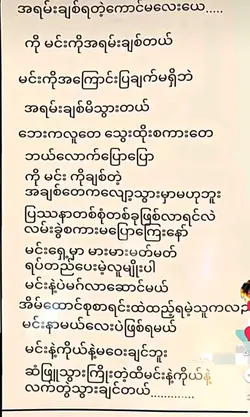 အရမ်းချစ်ရတဲ့ကောင်မလေးယေ.....
ကို မင်းကိုအရမ်းချစ်တယ်
မင်းကိုအကြောင်းပြချက်မရှိဘဲ
အရမ်းချစ်မိသွားတယ်
ဘေးကလူတေ သွေးထိုးစကားတေ
ဘယ်လောက်ပြောပြော
ကို မင်း ကိုချစ်တဲ့
အချစ်တေကလျော့သွားမှာမဟုဘူး
ပြဿနာတစ်စုံတစ်ခုဖြစ်လာရင်လဲ
လမ်းခွဲစကားမပြောကြေးနော်
မင်းရှေ့မှာ မားမားမတ်မတ်
ရပ်တည်ပေးမဲ့လူမျိုးပါ
မင်းနဲ့ပဲမင်္ဂလာဆောင်မယ်
အိမ်ထောင်စုစာရင်းထဲထည့်ရမဲ့သူကလဉ်
မင်းနာမယ်လေးပဲဖြစ်ရမယ်
မင်းနဲ့ကိုယ်နဲ့မဝေးချင်ဘူး
ဆံဖြူသွားကြိုးတဲ့ထိမင်းနဲ့ကိုယ်နဲ့
လက်တွဲသွားချင်တယ်.............